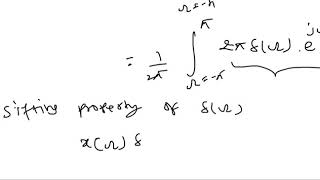 Ω=-π
= 1/2π ∫_{Ω=-π}^{π} 2π δ(Ω) . e^j
Sifting property of δ(Ω)
x(Ω) δ